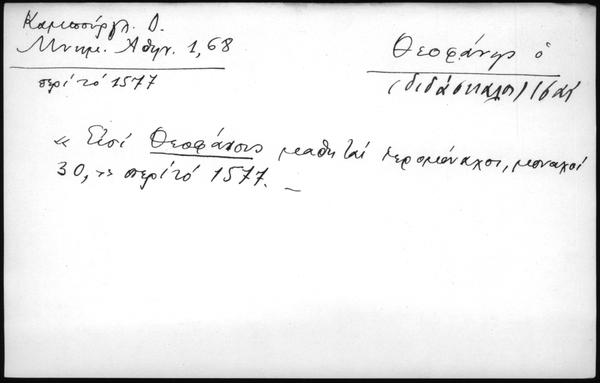 Καμπούρογλ. Δ.
Μνημ. Αθην. 1,68
περί τό 1577
Θεοφάνης ὁ
(διδάσκαλος) (16 αἰ)
« Εἰσί Θεοφάνους μαθηταί ἱερομόναχοι, μοναχοί
30, » περί τό 1577. –